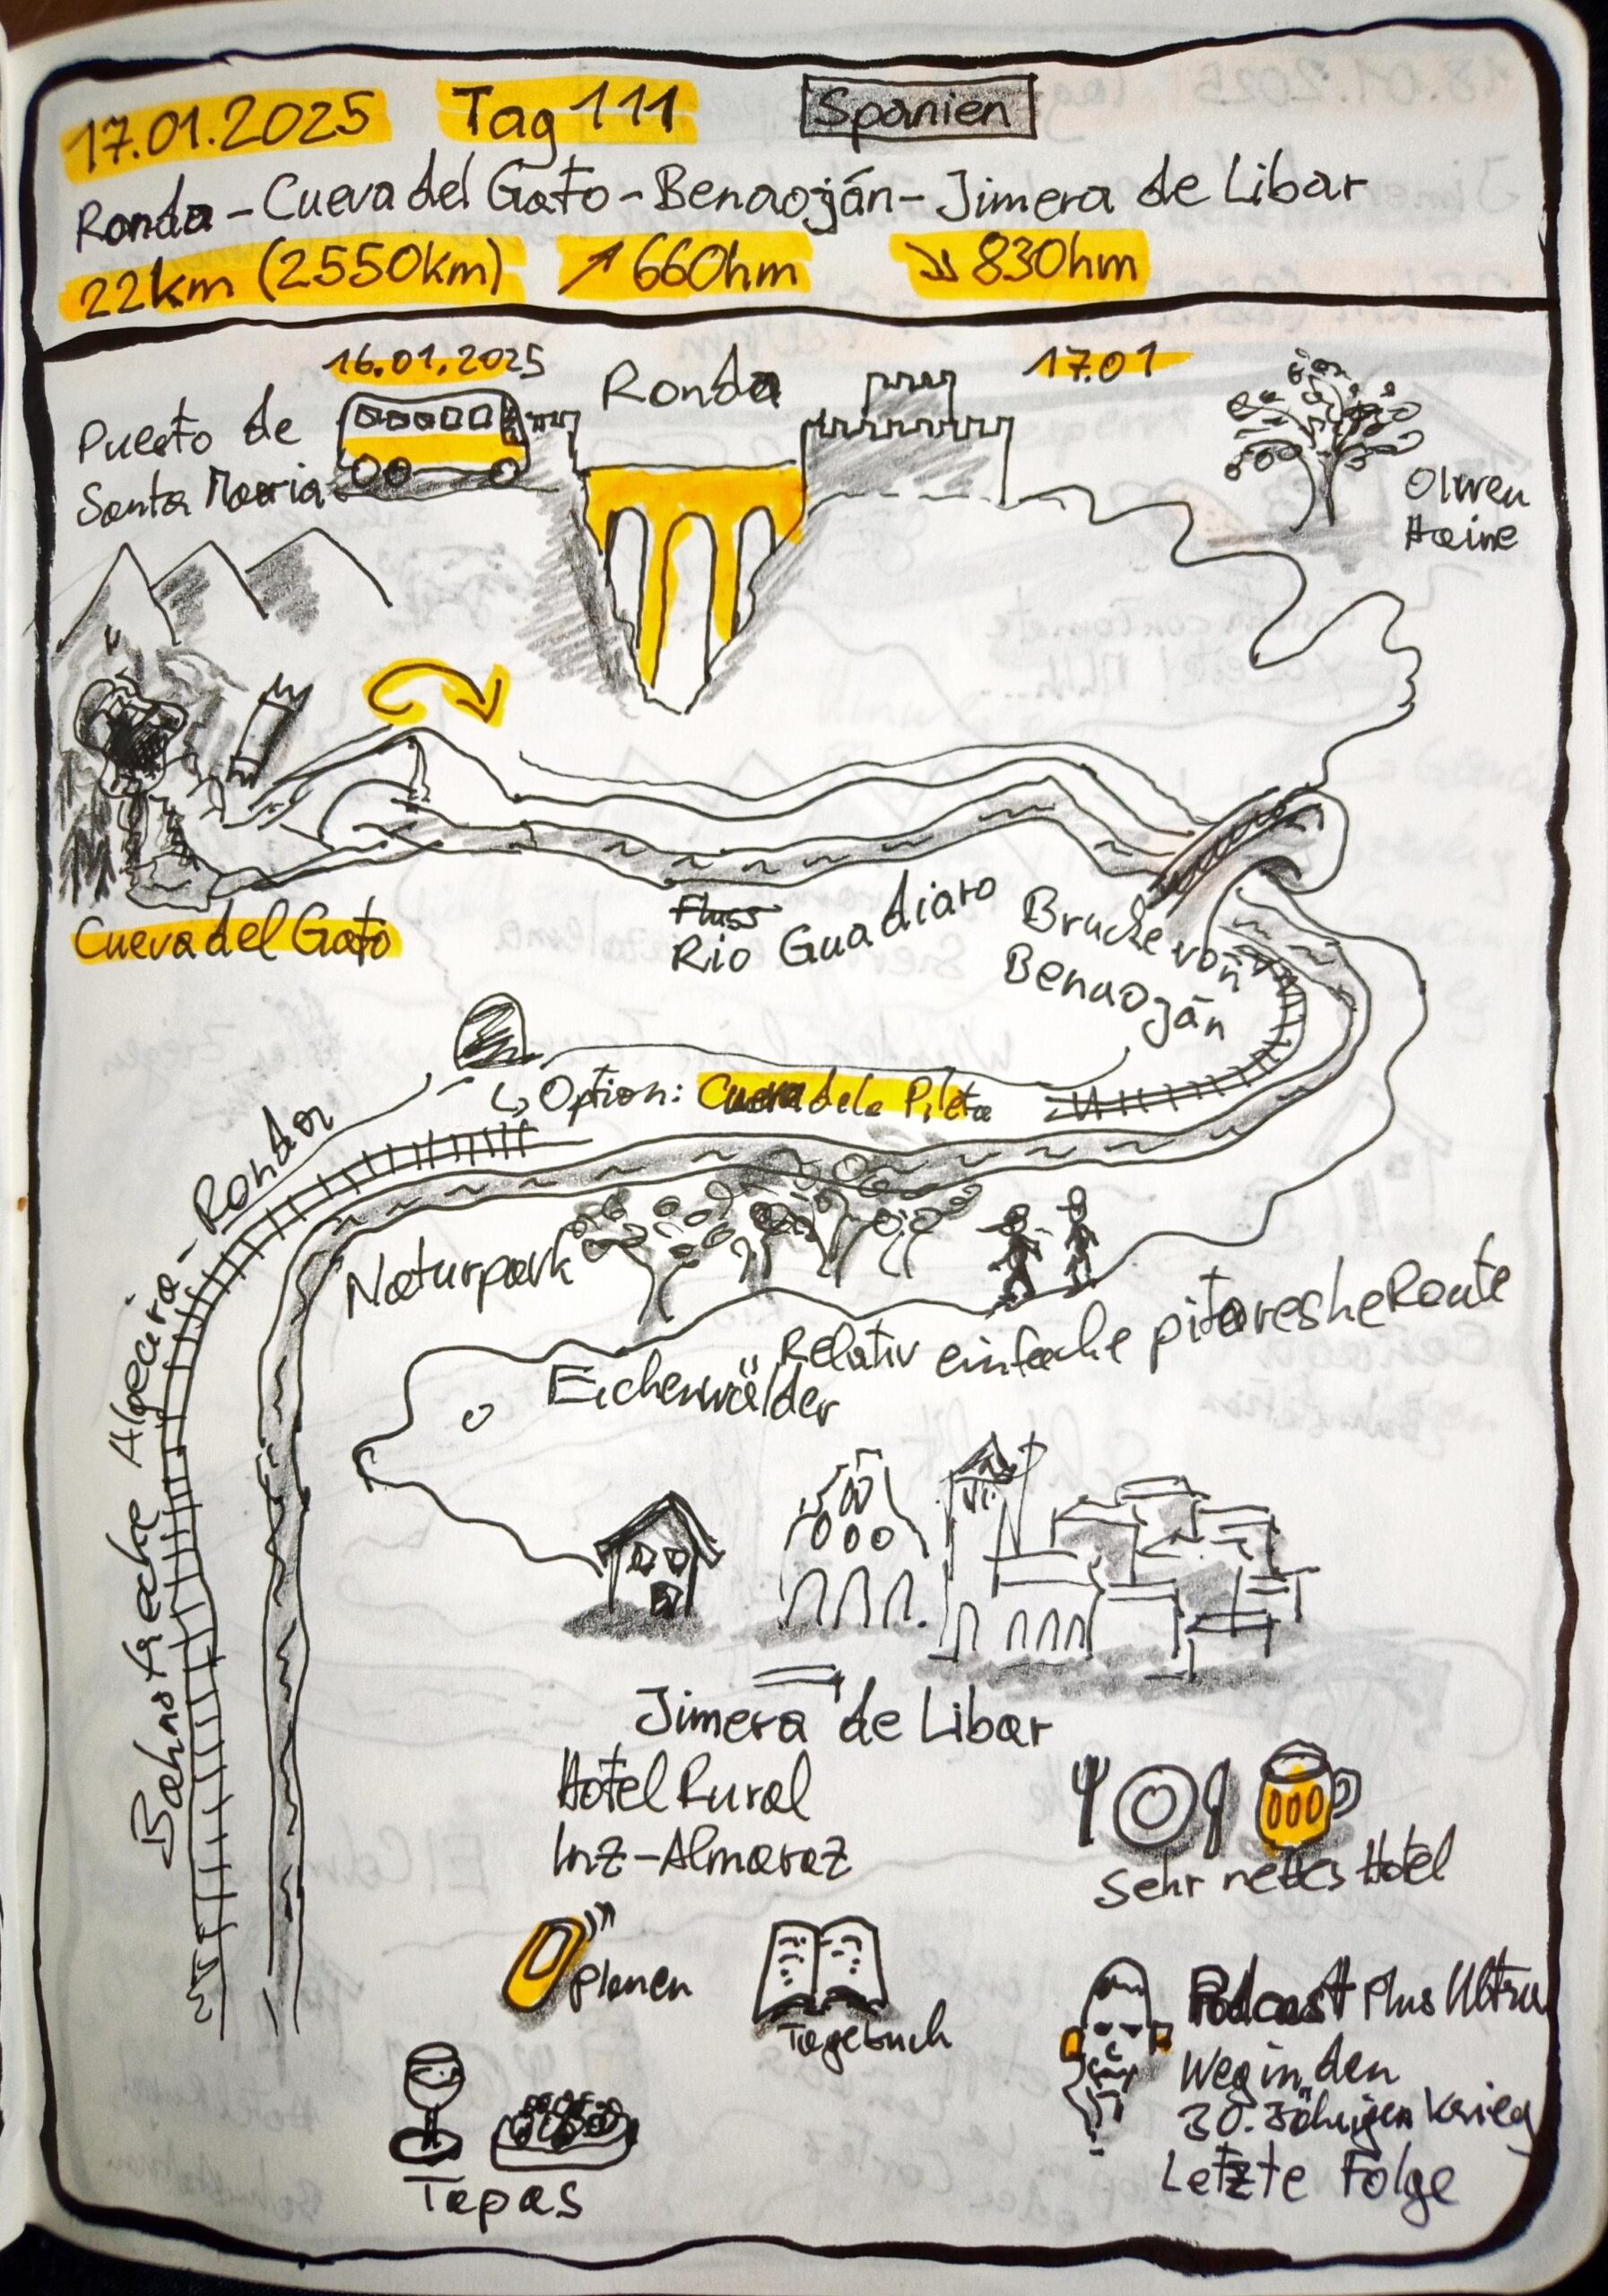 17.01.2025 Tag 111 Spanien
Ronda – Cueva del Gato – Benaoján – Jimera de Libar
22km (2550km) ↗ 660hm ↘ 830hm
16.01.2025
Ronda
17.01
Puerto de
Santa Maria
Oliven
Haine
Cueva del Gato
Fluss
Rio Guadiaro
Brucke von
Benaoján
↳ Option: Cueva dela Pileta
Bahnstrecke Algecira - Rondar
Naturpark
Relativ einfache pitoreske Route
Eichenwälder
Jimera de Libar
Hotel Rural
Inz-Almaraz
Sehr nettes Hotel
planen
Tagebuch
Podcast Plus Ultra
Weg in den
30. Jährigen Krieg
Letzte Folge
Tapas